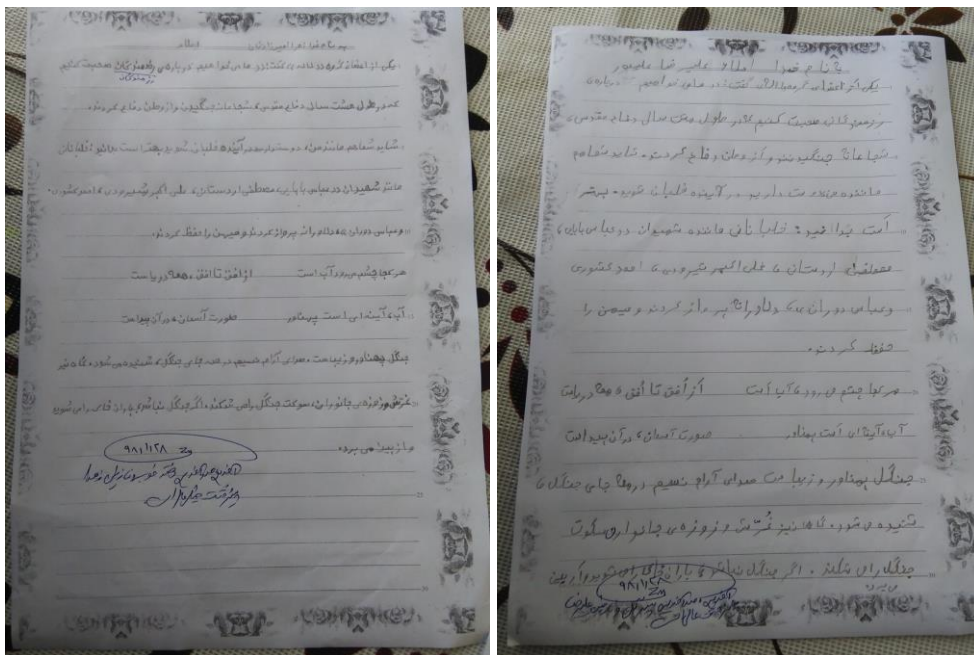 به نام خدا زهرا امیری زادگان املاء
یکی از اعضای گروه دانش آموزی گفت: در ما می خواهیم درباره ی رزمندگان صحبت کنیم
رزمندگان
که در طول هشت سال دفاع مقدس، شجاعانه جنگیدن و از وطن دفاع کردند.
شاید شما هم مانند من، دوست دارید در آینده خلبان شوید بهتر است بدانید خلبانان
مانند شهیدان دوعباس بابایی، مصطفی اردستانی، علی اکبر شیرودی، احمد کشوری،
و عباس دوران، دلاورانه پرواز کردند و میهن را حفظ کردند.
هر کجا چشم می رود آب است از افق تا افق، همه دریاست
آب، آیینه ای است پهناور صورت آسمان، در آن پیداست
جنگل پهناور و زیباست، صدای آرام نسیم در همه جای جنگل، شنیده می شود، گاه نیز
غرّش و زوزه ی جانوران، سکوت جنگل را می شکند، اگر جنگل نباشد، باران خاک را می شوید
و از بین می برد.
۹۸/۱/۲۸
به نام خدا املاء علیرضا
یکی از اعضای گروه دانش گفت: در ما می خواهیم درباره ی
رزمندگانی صحبت کنیم که در طول هشت سال دفاع مقدس،
شجاعانه جنگیدند و از وطن دفاع کردند. شاید شما هم
مانند من دوست دارید در آینده خلبان شوید. بهتر
است بدانید: خلبانانی مانند شهیدان دوعباس بابایی،
مصطفی اردستانی، علی اکبر شیرودی، احمد کشوری
و عباس دوران، دلاورانه پرواز کردند و میهن را
حفظ کردند.
هر کجا چشم می رود، آب است از اُفق تا اُفق، همه دریاست
آب، آیینه ای است پهناور صورت آسمان، در آن پیداست
جنگل پهناور و زیباست صدای آرام نسیم در همه جای جنگل،
شنیده می شود، گاه نیز غُرّش و زوزه ی جانوران سکوت
جنگل را می شکند. اگر جنگل نباشد، باران خاک را می شوید و از بین
می برد
۹۸/۱/۲۸